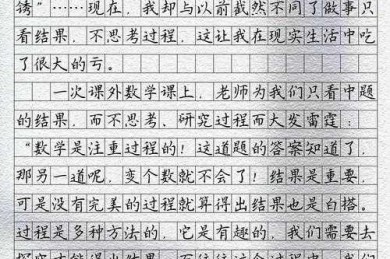 锈”……现在，我却与以前截然不同了做事只
看结果，不思考过程，这让我在现实生活中吃
了很大的亏。
一次课外数学课上，老师为我们只看中题
的结果，而不思考、研究过程而大发雷霆：
“数学是注重过程的！这道题的答案知道了，
那另一道呢，变个数就不会了！结果是重要，
可是没有完美的过程就算得出结果也是白搭。
过程是多种方法的，它是有趣的，我们需要去
探究才能得出结果，而往往这个过程中，我们